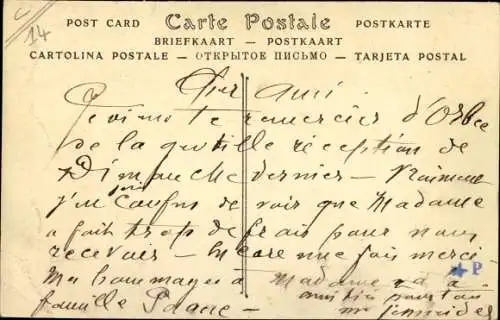 14
POST CARD Carte Postale POSTKARTE
BRIEFKAART — POSTKAART
CARTOLINA POSTALE — ОТКРЫТОЕ ПИСЬМО — TARJETA POSTAL
Cher ami.
Je viens te remercier d'
de la gentille réception de
Dimanche dernier — Vraiment
je suis confus de voir que Madame
a fait trop de frais pour nous
recevoir — Encore une fois merci
Mes hommages à Madame
famille
P